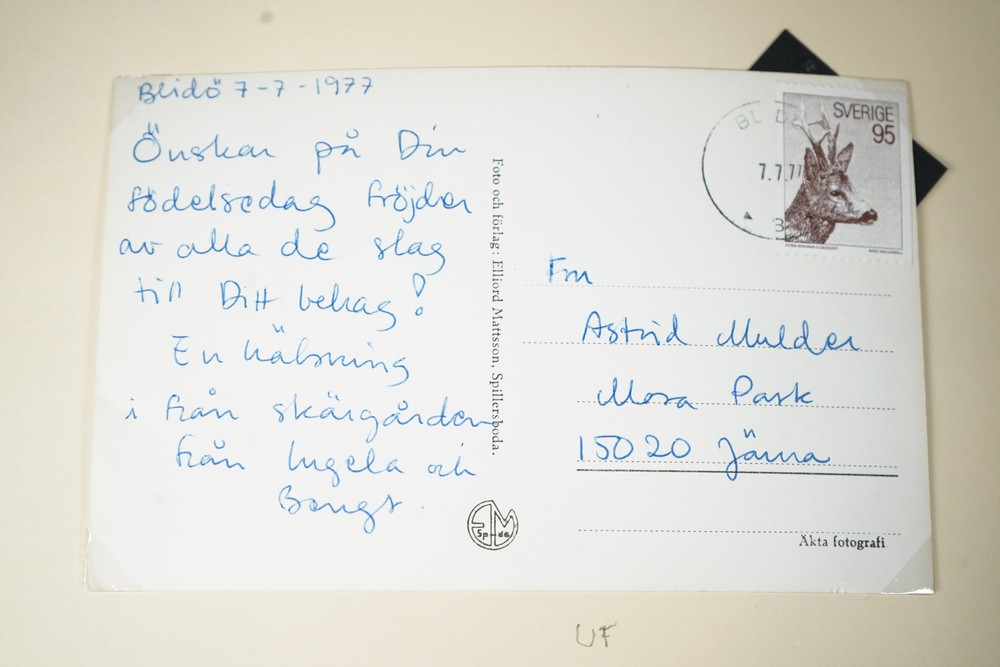 Blidö 7-7-1977
Önskar på Din
födelsedag fröjder
av alla de slag
till Ditt behag!
En hälsning
i från skärgården
från Ingela och
Bengt.
Foto och förlag: Elliord Mattsson, Spillersboda.
SVERIGE
95
BLIDÖ
7.7.77
Fru
Astrid Mulder
Mora Park
15020 Järna
Äkta fotografi
UF